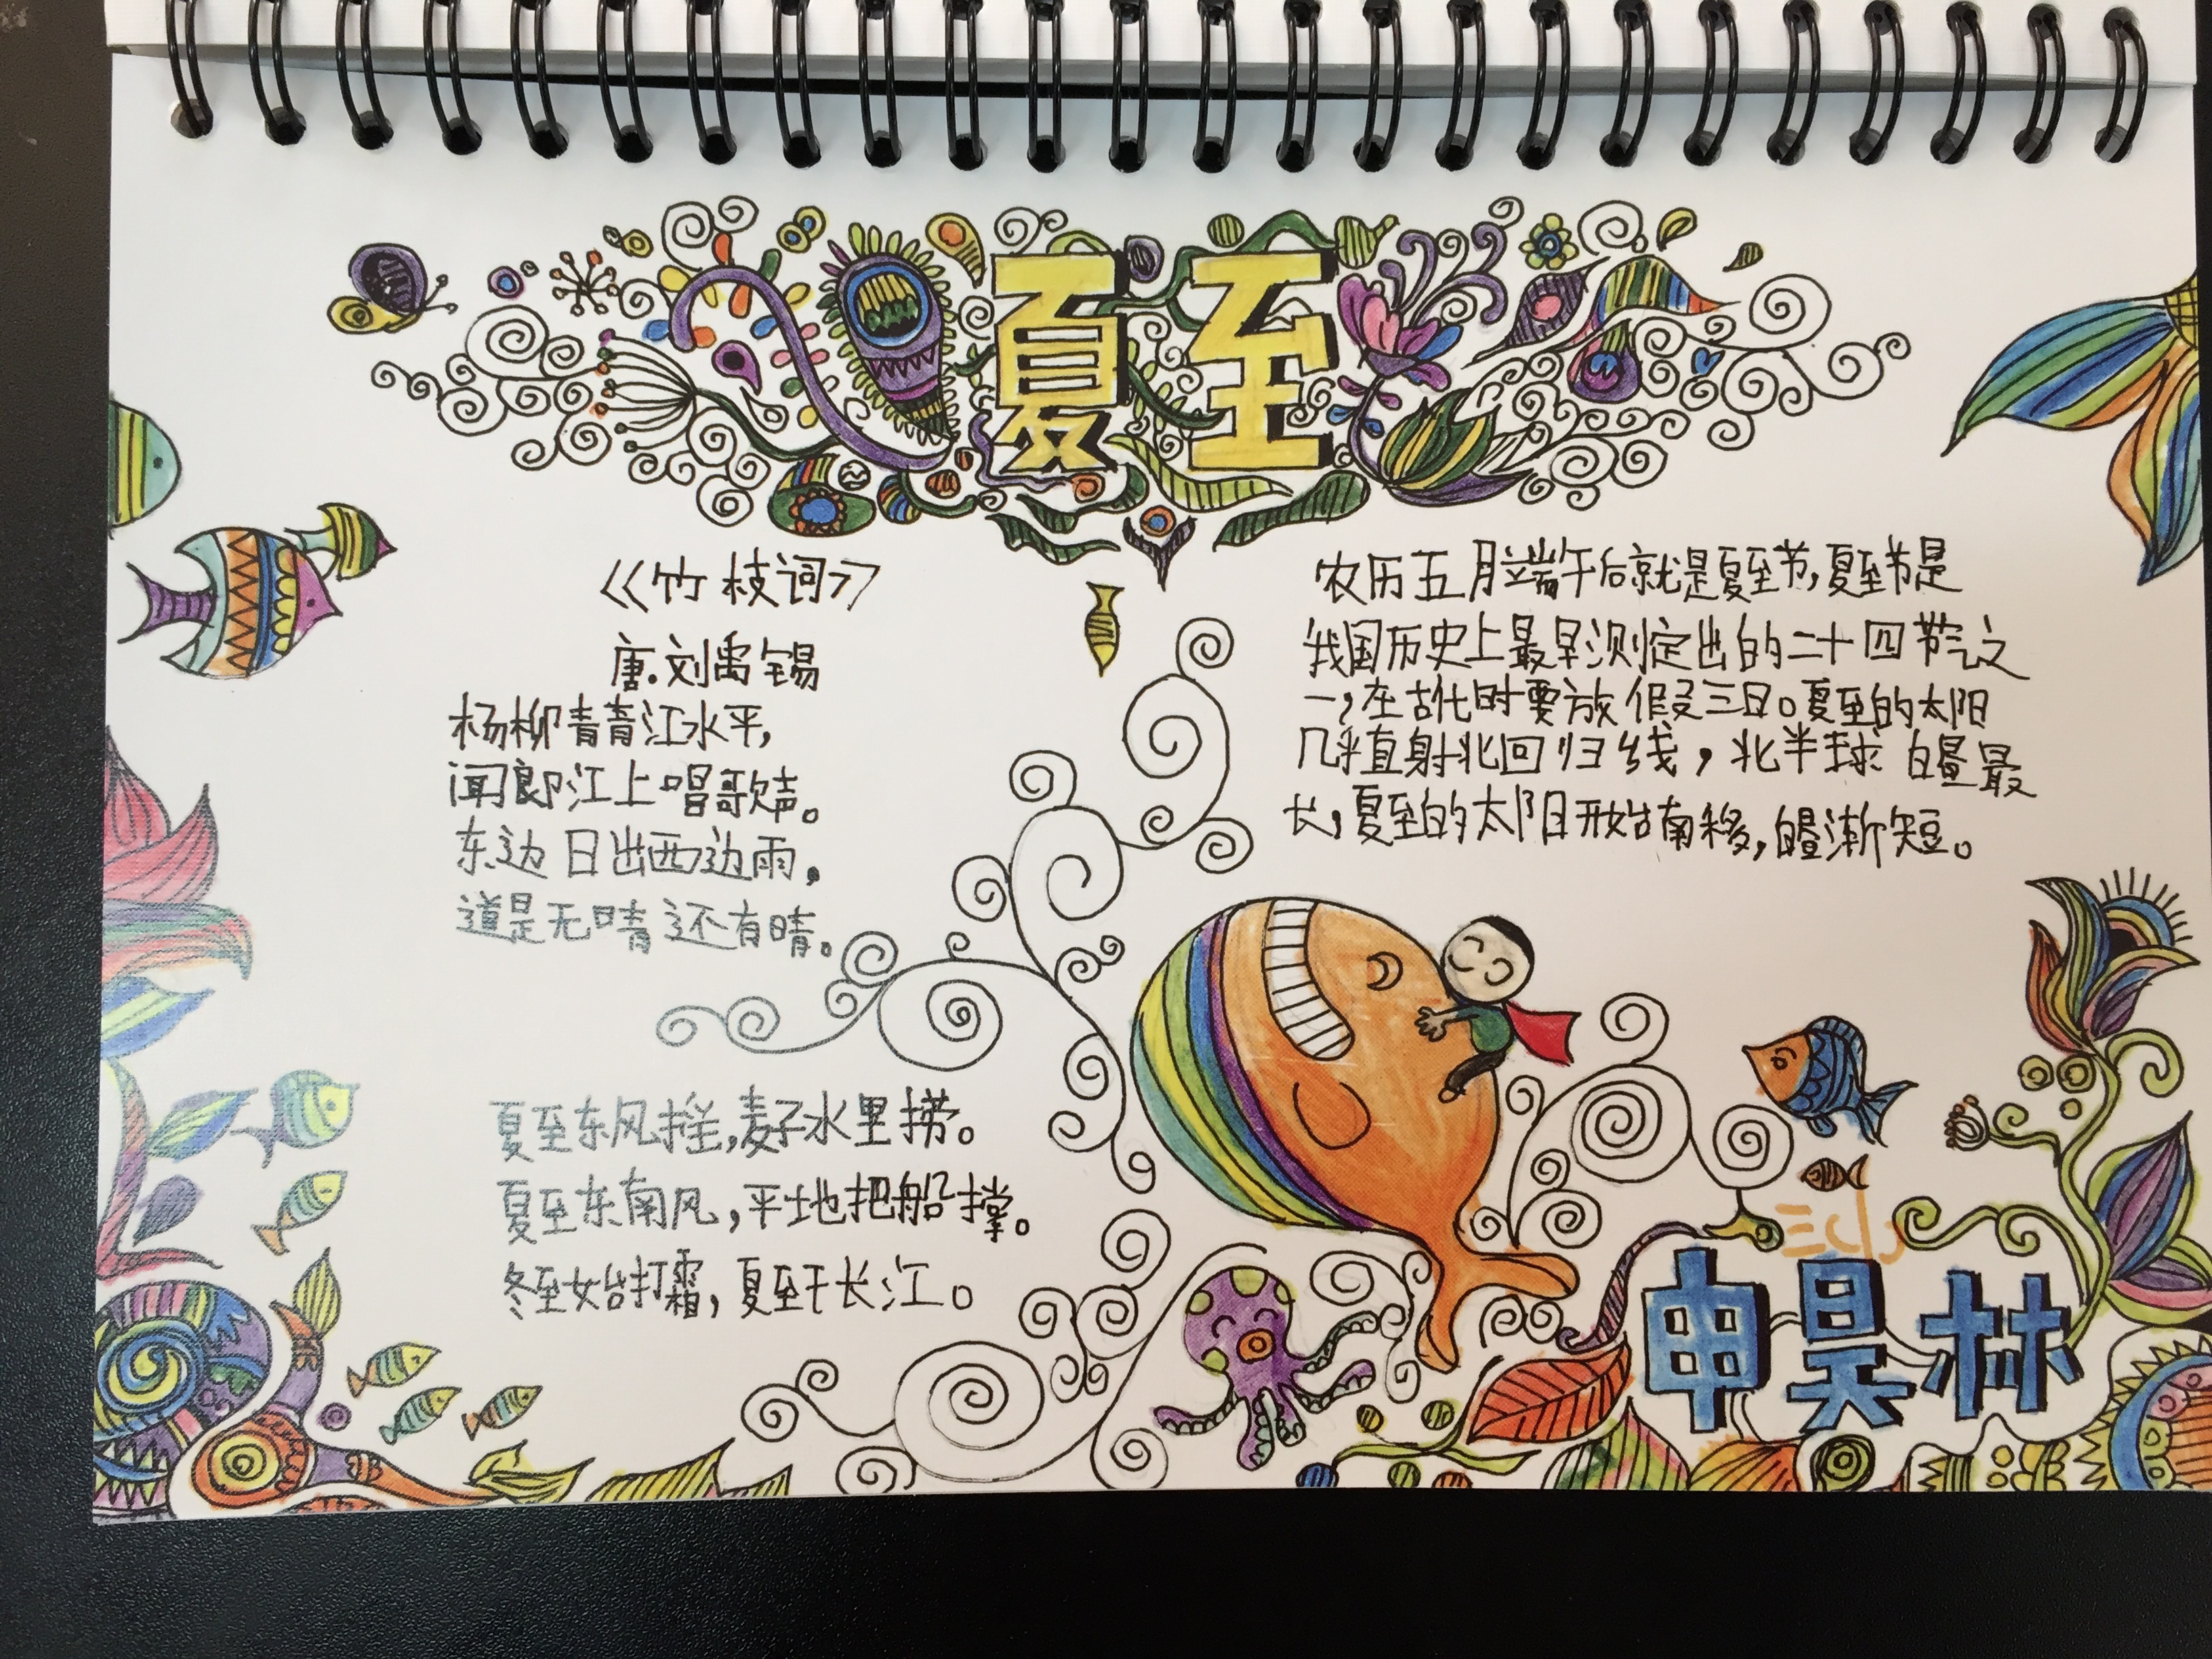 夏至
《竹枝词》
唐.刘禹锡
杨柳青青江水平,
闻郎江上唱歌声。
东边日出西边雨,
道是无晴还有晴。
夏至东风摇,麦子水里捞。
夏至东南风,平地把船撑。
冬至始打霜,夏至干长江。
农历五月端午后就是夏至节,夏至节是
我国历史上最早测定出的二十四节气之
一,在古代时要放假三日。夏至的太阳
几乎直射北回归线,北半球白昼最
长,夏至的太阳开始南移,白昼渐短。
申昊林